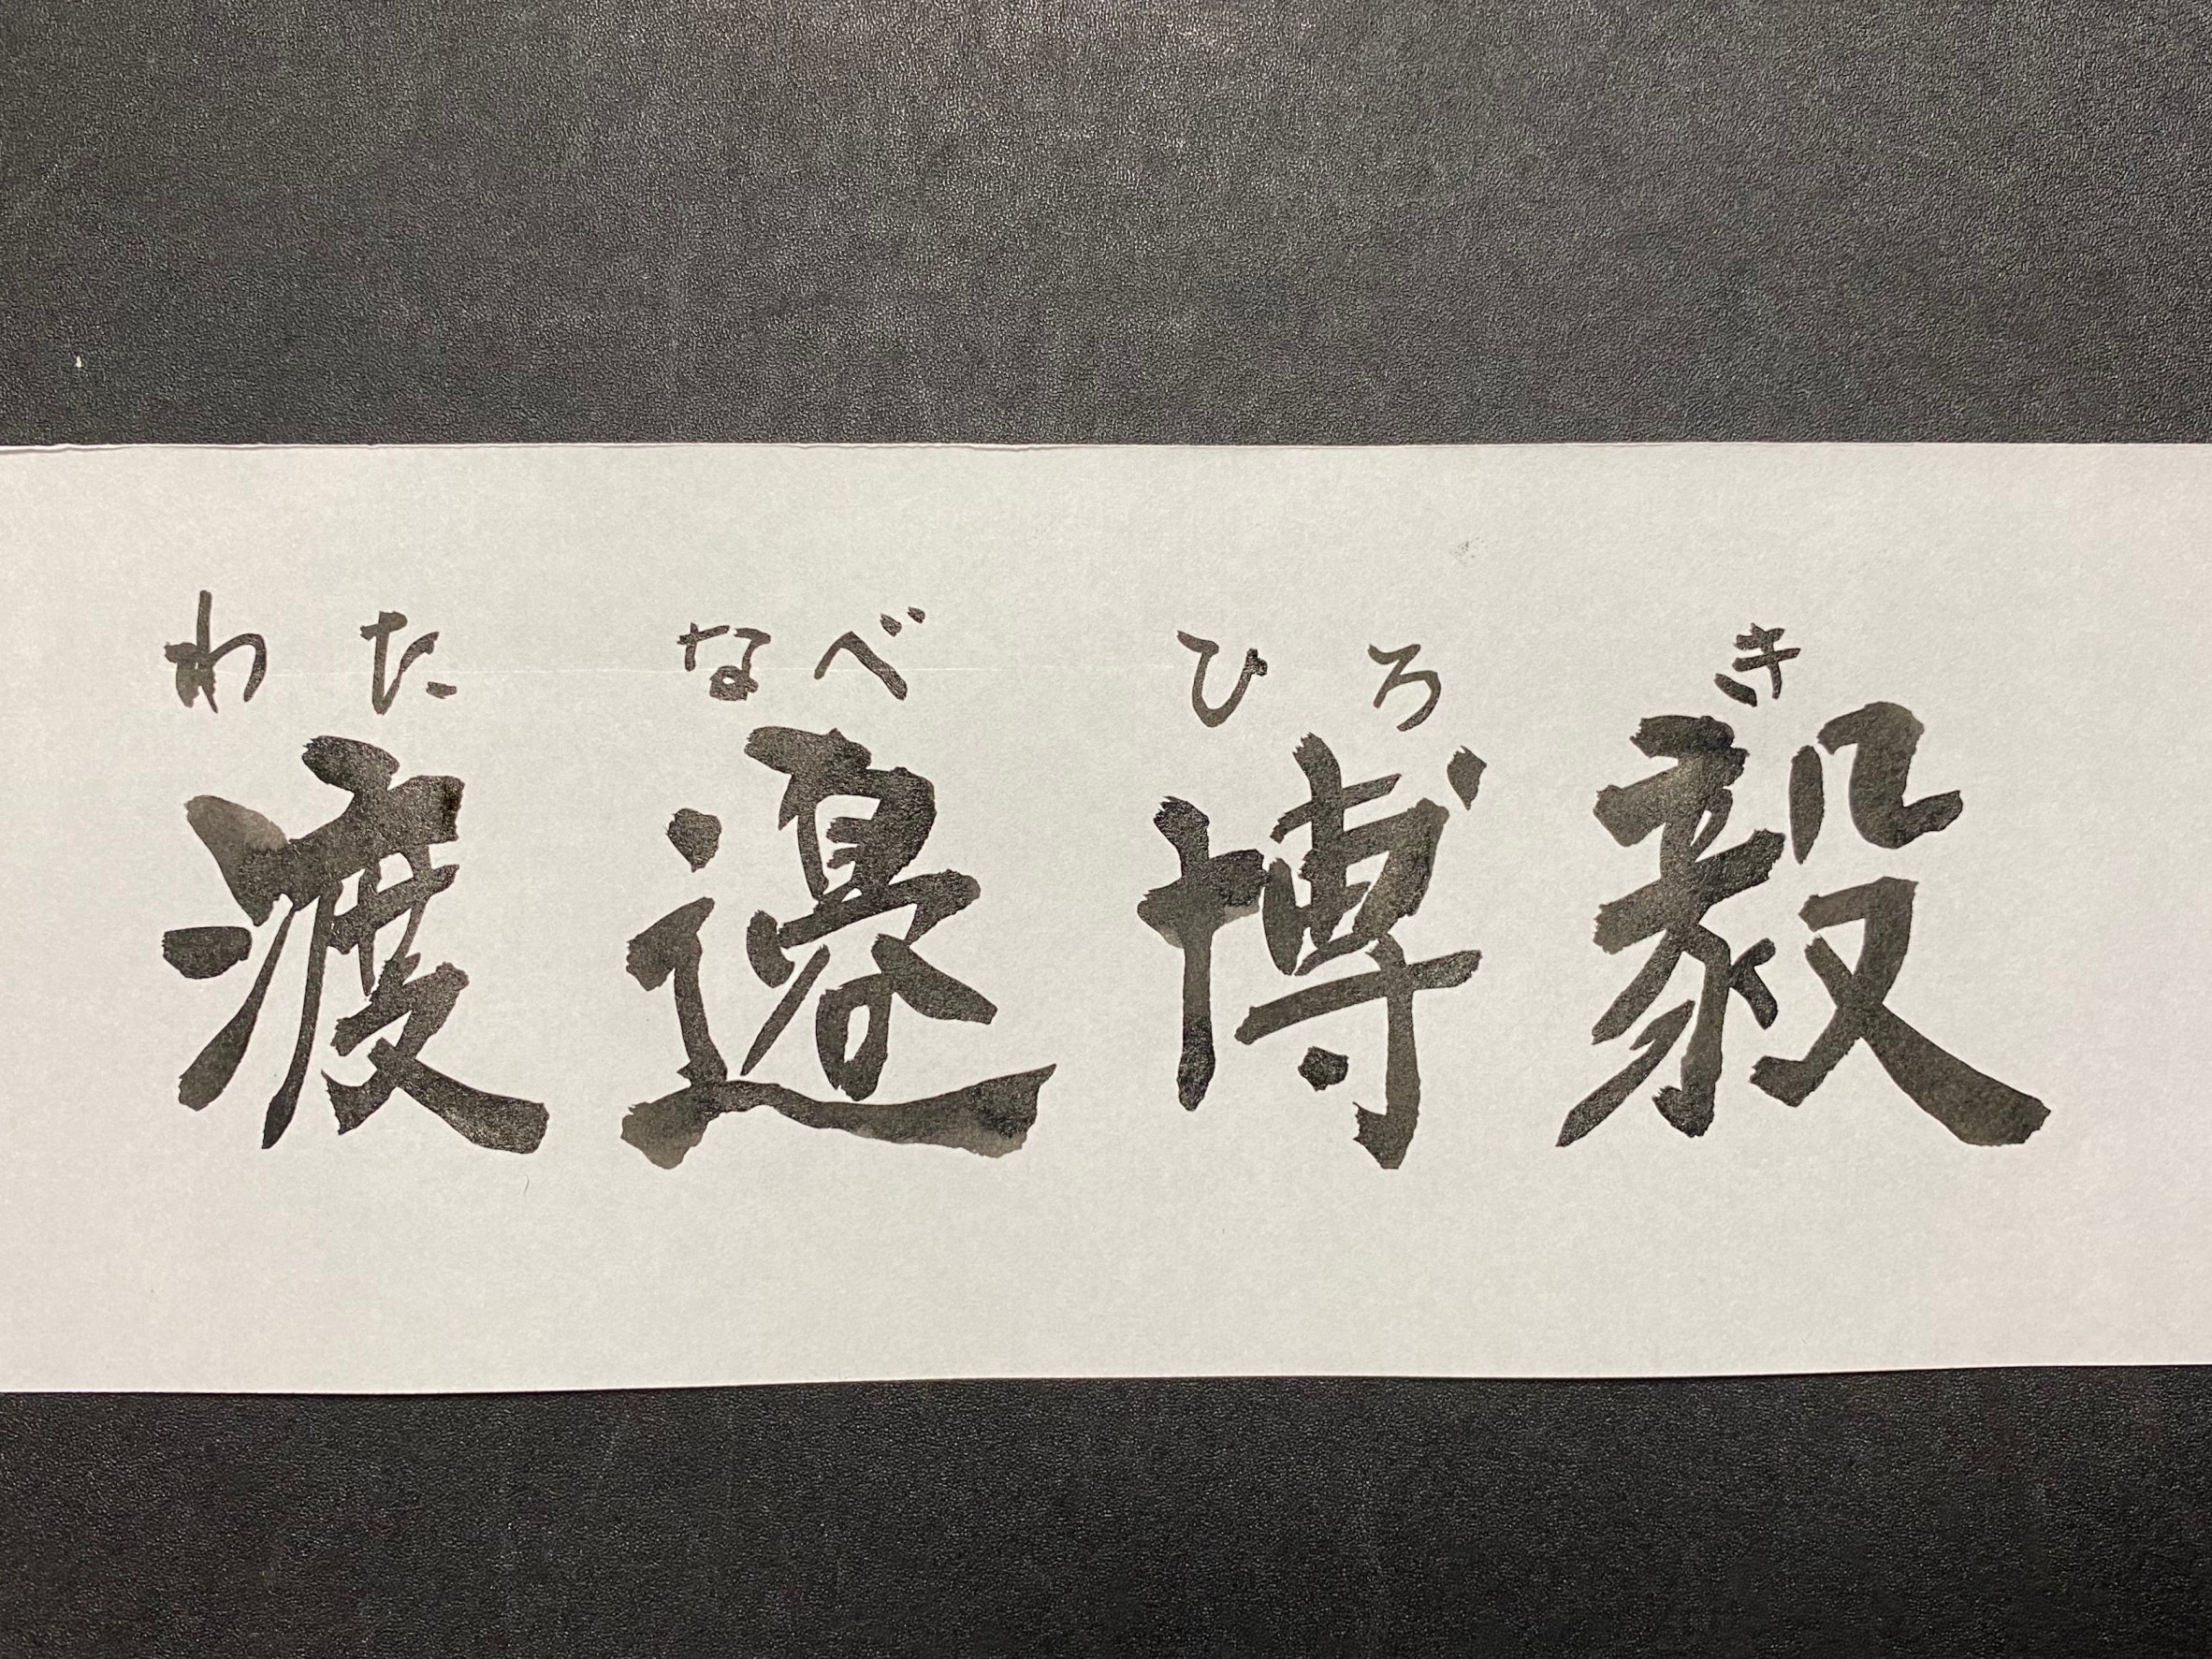 わたなべひろき
渡邉博毅